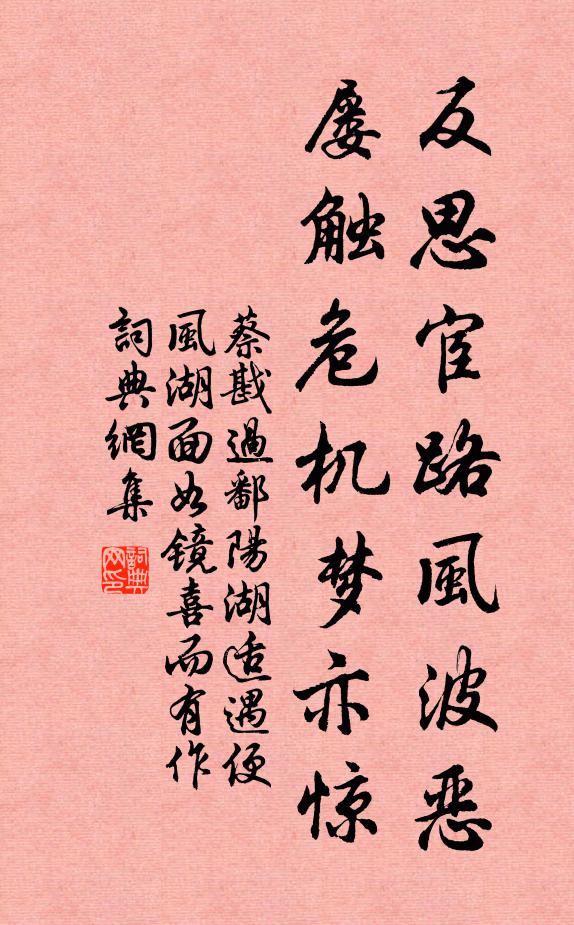 反思宦路風波恶
屡触危机梦亦惊
蔡戡過鄱陽湖适遇便
風湖面如镜喜而有作
詞典網集
詞典
网印